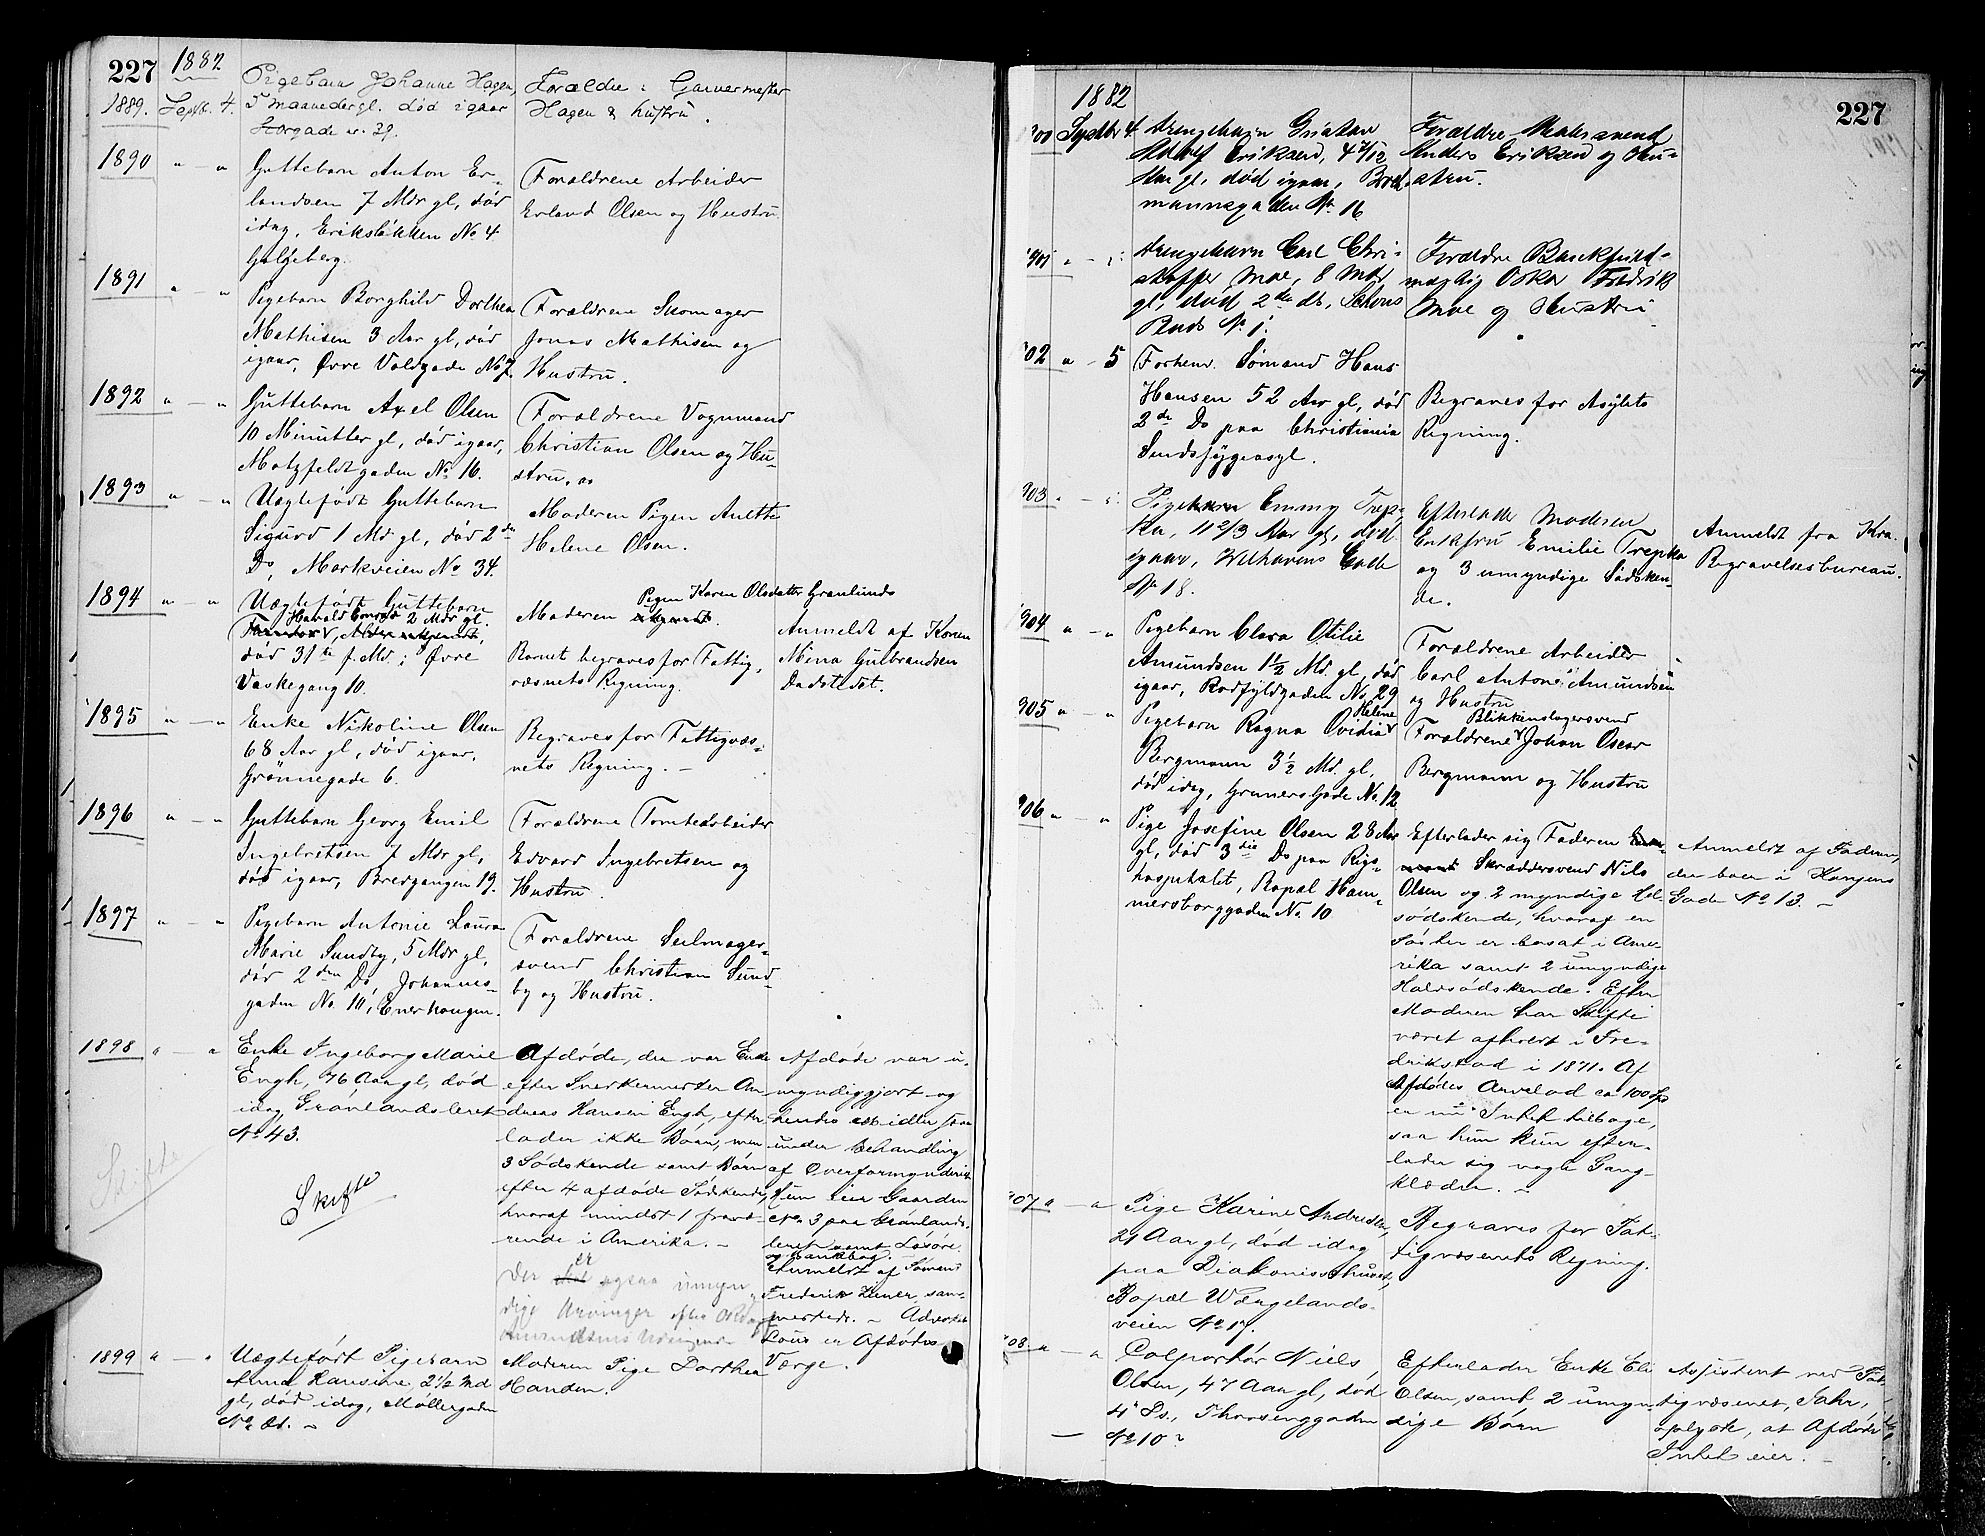 227
1882
1889. Septb. 4.
Pigebarn Johanne Hagen,
5 maaneder gl. død igaar
Storgade n. 39.
Forældre: Garvermester
Hagen & hustru.
1890 " — "
Guttebarn Anton Er-
landsen 7 Mdr gl, død
idag, Eriksløkken No 4
Galgeberg.
Forældrene Arbeider
Erland Olsen og Hustru
1891 " — "
Pigebarn Borghild Dorthea
Mathisen 3 Aar gl, død
igaar, Øvre Voldgade No 7.
Forældrene Skomager
Jonas Mathisen og
Hustru.
1892 " — "
Guttebarn Axel Olsen
10 Minutter gl, død igaar,
Motzfeldtgaden No 16.
Forældrene Vognmand
Christian Olsen og Hu-
stru.
1893 " — "
Uægtefødt Guttebarn
Sigurd 1 Md gl, død 2de
Ds, Markveien No 34.
Moderen Pigen Anette
Helene Olsen.
1894 " — "
Uægtefødt Guttebarn
Harald 2 Mdr gl.
død 31te f. Md; Øvre
Vaskegang 10.
Pigen Karen Olsdatter Granlunds
Moderen ubekjendt.
Barnet begraves for Fattig-
væsnets Regning.
Anmeldt af Konen
Mina Gulbrandsen
Dadstedet.
1895 " — "
Enke Nikoline Olsen
68 Aar gl, død igaar,
Grønnegade 6.
Begraves for Fattigvæs-
nets Regning. —
1896 " — "
Guttebarn Georg Emil
Ingebretsen 7 Mdr gl,
død igaar, Bredgangen 19.
Forældrene Tomtearbeider
Edvard Ingebretsen og
Hustru.
1897 " — "
Pigebarn Antonie Laura
Marie Sundby, 5 Mdr gl,
død 2den Ds, Johannes-
gaden No 10, Enerhaugen.
Forældrene Seilmager-
svend Christian Sund-
by og Hustru.
1898 " — "
Enke Ingeborg Marie
Engh, 76 Aar gl, død
idag Grønlandsleret
No 43.
Skifte
Skifte
Afdøde, der var Enke
efter Snekkermester An-
dreas Hansen Engh, efter
lader ikke Børn, men
3 Sødskende samt Børn
efter 4 afdøde Sødskende,
hvoraf mindst 1 fravæ-
rende i Amerika. —
Der er ogsaa umyn-
dige Arvinger efter
Afdøde var u-
myndiggjort og
hendes Midler staa
under Behandling
af Overformynderiet
Hun eier Gaarden
No 3 paa Grønlands-
leret samt Løsøre
og Bankbog.
Anmeldt af Sømand
Frederik, sam-
mesteds. — Advokat
er Afdødes
Værge.
1899 " — "
Uægtefødt Pigebarn
Anna Hansine, 2 1/2 Md
gl, død idag, Møllergaden
No 21. —
Moderen Pige Dorthea
Hansen.
227
1882
900 Septbr 4.
Drengebarn Gustav
Adolf Eriksen, 4 7/12
Aar gl, død igaar, Bred-
mannsgaden No 16
Forældre Malersvend
Anders Eriksen og Hu-
stru.
901 " — "
Drengebarn Carl Chri-
stoffer Moe, 8 Mdr
gl, død 2den ds, Schous
Plads No 1.
Forældre Bankfuld-
mægtig Oskar Fredrik
Moe og Hustru
902 " — 5
Forhenv. Sømand Hans
Hansen 52 Aar gl, død
2de Ds paa Christiania
Sindssygeasyl.
Begraves for Asylets
Regning.
903 " — "
Pigebarn Emmy Trep-
ka, 11 2/3 Aar gl, død
igaar, Welhavens Gade
No 18.
Efterlader Moderen
Enkefru Emilie Trepka
og 3 umyndige Sødsken-
de.
Anmeldt fra Kra.
Begravelsesbureau.
904 " — "
Pigebarn Clara Otilie
Amundsen 1 1/2 Md. gl, død
igaar, Rodfyldgaden No 29
Forældrene Arbeider
Carl Anton Amundsen
og Hustru
905 " — "
Helene
Pigebarn Ragna Ovidia
Bergmann 3 1/2 Md. gl,
død idag, Gruners Gade No 12
Blikkenslagersvend
Forældrene Johan Oscar
Bergmann og Hustru
906 " — "
Pige Josefine Olsen 28 Aar
gl, død 3die Ds paa Rigs-
hospitalet, Bopæl Ham-
mersborggaden No 10
Efterlader sig Faderen
Skræddersvend Nils
Olsen og 2 myndige Hel-
sødskende, hvoraf en
Søster er bosat i Ame-
rika samt 2 umyndige
Halvsødskende. Efter
Moderen har Skifte
været afholdt i Fre-
drikstad i 1871. Af
Afdødes Arvelod ca 100 Sp
er nu Intet tilbage,
saa hun kun efter-
lader sig nogle Gang-
klæder. —
Anmeldt af Faderen,
der boer i Kongens
Gade No 13. —
907 " — "
Pige Karine Andresen,
21 Aar gl, død idag
paa Diakonissehuset,
Bopæl Wergelands-
veien No 17.
Begraves for Fat-
tigvæsenets Regning.
908 " — "
Colportør Niels
Olsen, 47 Aar gl, død
4' Ds., Thorsenggaden
No 10
Efterlader Enke Eli
Olsen, samt 2 umyn-
dige Børn
Assistent ved Fat-
tigvæsenet, Fahr,
oplyste, at Afdøde
Intet eier. —